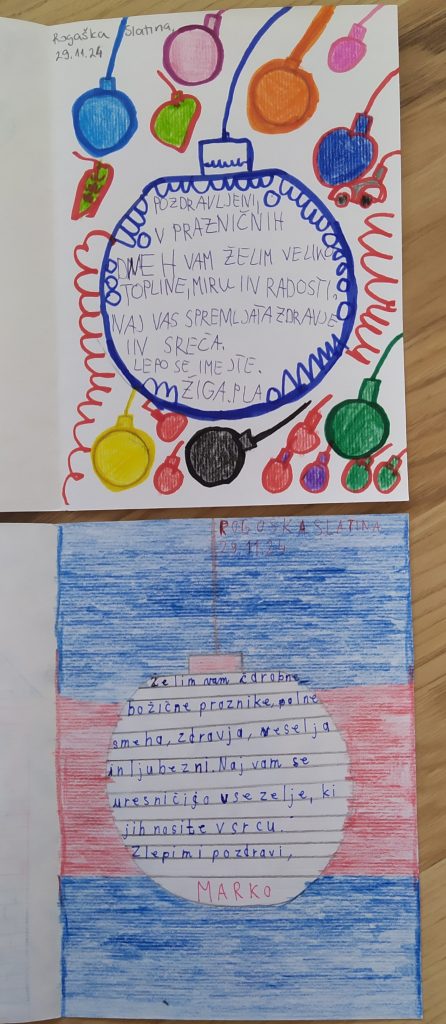 Rogaška Slatina,
29.11.24
POZDRAVLJENI,
V PRAZNIČNIH
DNEH VAM ŽELIM VELIKO
TOPLINE, MIRU IN RADOSTI.
NAJ VAS SPREMLJATA ZDRAVJE
IN SREČA.
LEPO SE IMEJTE.
ŽIGA.PLA
ROGOŠKA SLATINA
29.11.24
Želim vam čdrobne
božične praznike, polne
smeha, zdravja, veselja
in ljubezni. Naj vam se
uresničijo vse zelje, ki
jih nosite v srcu.
Z lepimi pozdravi,
MARKO